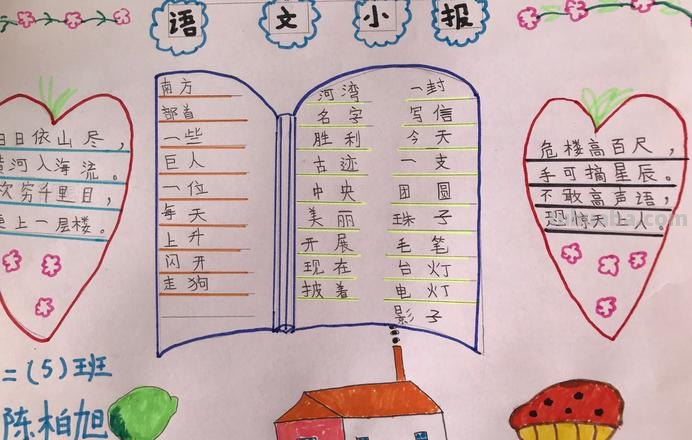 语文小报
白日依山尽，
黄河入海流。
穷千里目，
更上一层楼。
南方
部首
一些
巨人
一位
每天
上升
闪开
走狗
河湾
名字
胜利
古迹
中央
美丽
开展
现在
披着
一封
写信
今天
一支
团圆
珠子
毛笔
台灯
电灯
影子
危楼高百尺，
手可摘星辰。
不敢高声语，
恐惊天上人。
二(5)班
陈柏旭